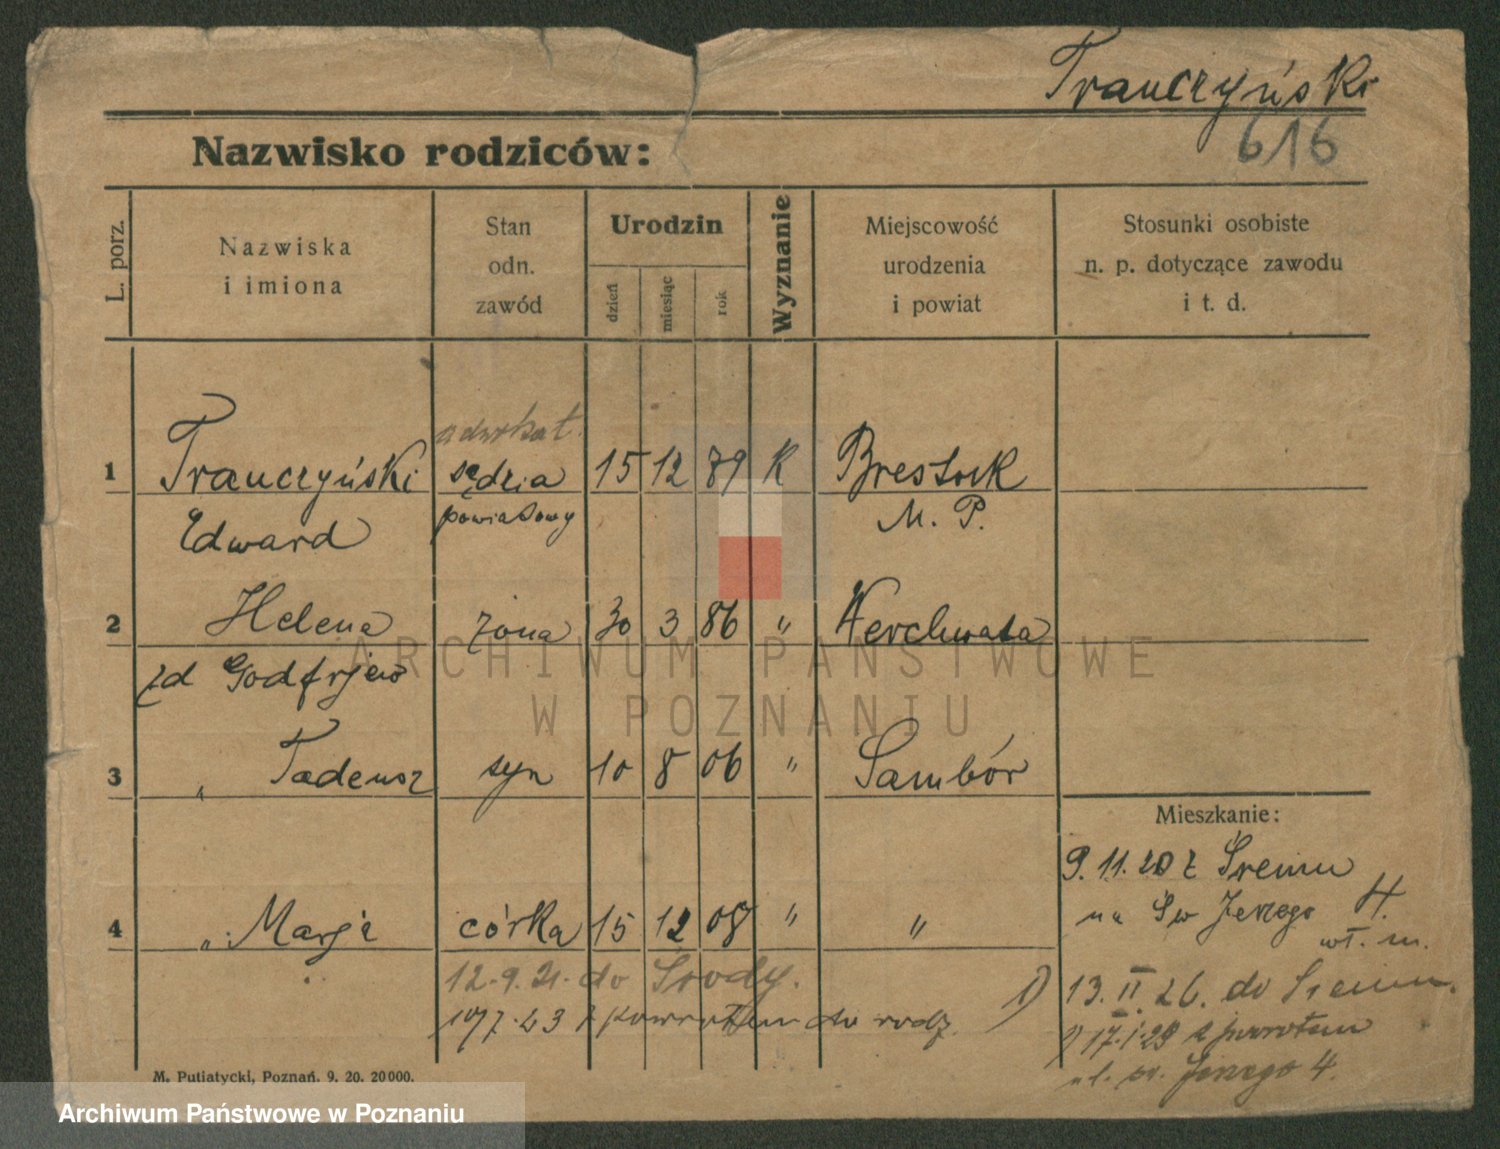 Trauczyński
616
Nazwisko rodziców:
L. porz.
Nazwiska
i imiona
Stan
odn.
zawód
Urodzin
dzień
miesiąc
rok
Wyznanie
Miejscowość
urodzenia
i powiat
Stosunki osobiste
n. p. dotyczące zawodu
i t. d.
adwokat.
1 Trauczyński sędzia 15 12 79 K Brestock
powiatowy M. P.
Edward
2 Helena żona 30 3 86 " Werchrata
zd Godfrjew
3 " Tadeusz syn 10 8 06 " Sambór
Mieszkanie:
9.11.20 z Śremu
na Św Jerzego 4.
wł. m.
4 " Marja córka 15 12 08 " "
12.9.21. do Środy.
7.23 z powrotem do rodz. 1)
13.II.26. do Śremu.
1) 17.I.28 z powrotem
ul. św. Jerzego 4.
M. Putiatycki, Poznań. 9. 20. 20000.
ARCHIWUM PAŃSTWOWE
W POZNANIU
Archiwum Państwowe w Poznaniu